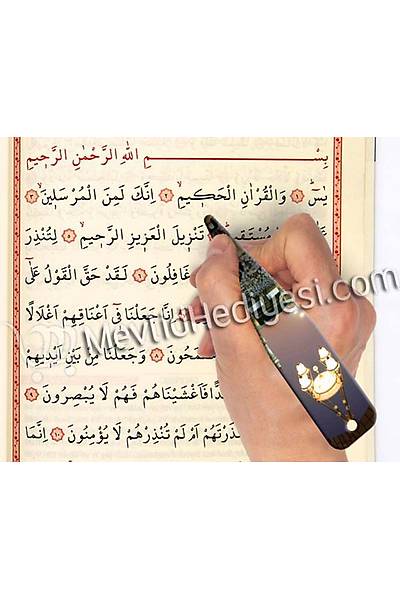 بِسْمِ اللهِ الرَّحْمٰنِ الرَّحٖيمِ
يٰسٓ ﴿١﴾ وَالْقُرْاٰنِ الْحَكٖيمِ ﴿٢﴾ اِنَّكَ لَمِنَ الْمُرْسَلٖينَ ﴿٣﴾
مُسْتَقٖيمٍ تَنْزٖيلَ الْعَزٖيزِ الرَّحٖيمِ ﴿٥﴾ لِتُنْذِرَ
غَافِلُونَ ﴿٦﴾ لَقَدْ حَقَّ الْقَوْلُ عَلٰٓى
اِنَّا جَعَلْنَا فٖٓى اَعْنَاقِهِمْ اَغْلَالًا
وَجَعَلْنَا مِنْ بَيْنِ اَيْدٖيهِمْ
فَاَغْشَيْنَاهُمْ فَهُمْ لَا يُبْصِرُونَ ﴿٩﴾
اَمْ لَمْ تُنْذِرْهُمْ لَا يُؤْمِنُونَ ﴿١٠﴾ اِنَّمَا
MevlidHediyesi.com